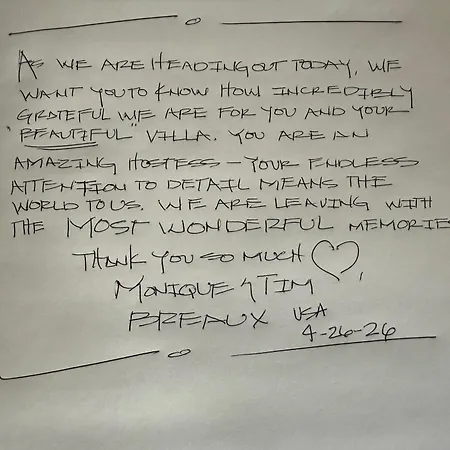 AS WE ARE HEADING OUT TODAY, WE
WANT YOU TO KNOW HOW INCREDIBLY
GRATEFUL WE ARE FOR YOU AND YOUR
"BEAUTIFUL" VILLA. YOU ARE AN
AMAZING HOSTESS – YOUR ENDLESS
ATTENTION TO DETAIL MEANS THE
WORLD TO US. WE ARE LEAVING WITH
THE MOST WONDERFUL MEMORIES
THANK YOU SO MUCH ♡
MONIQUE & TIM
BREAUX USA
4-26-26